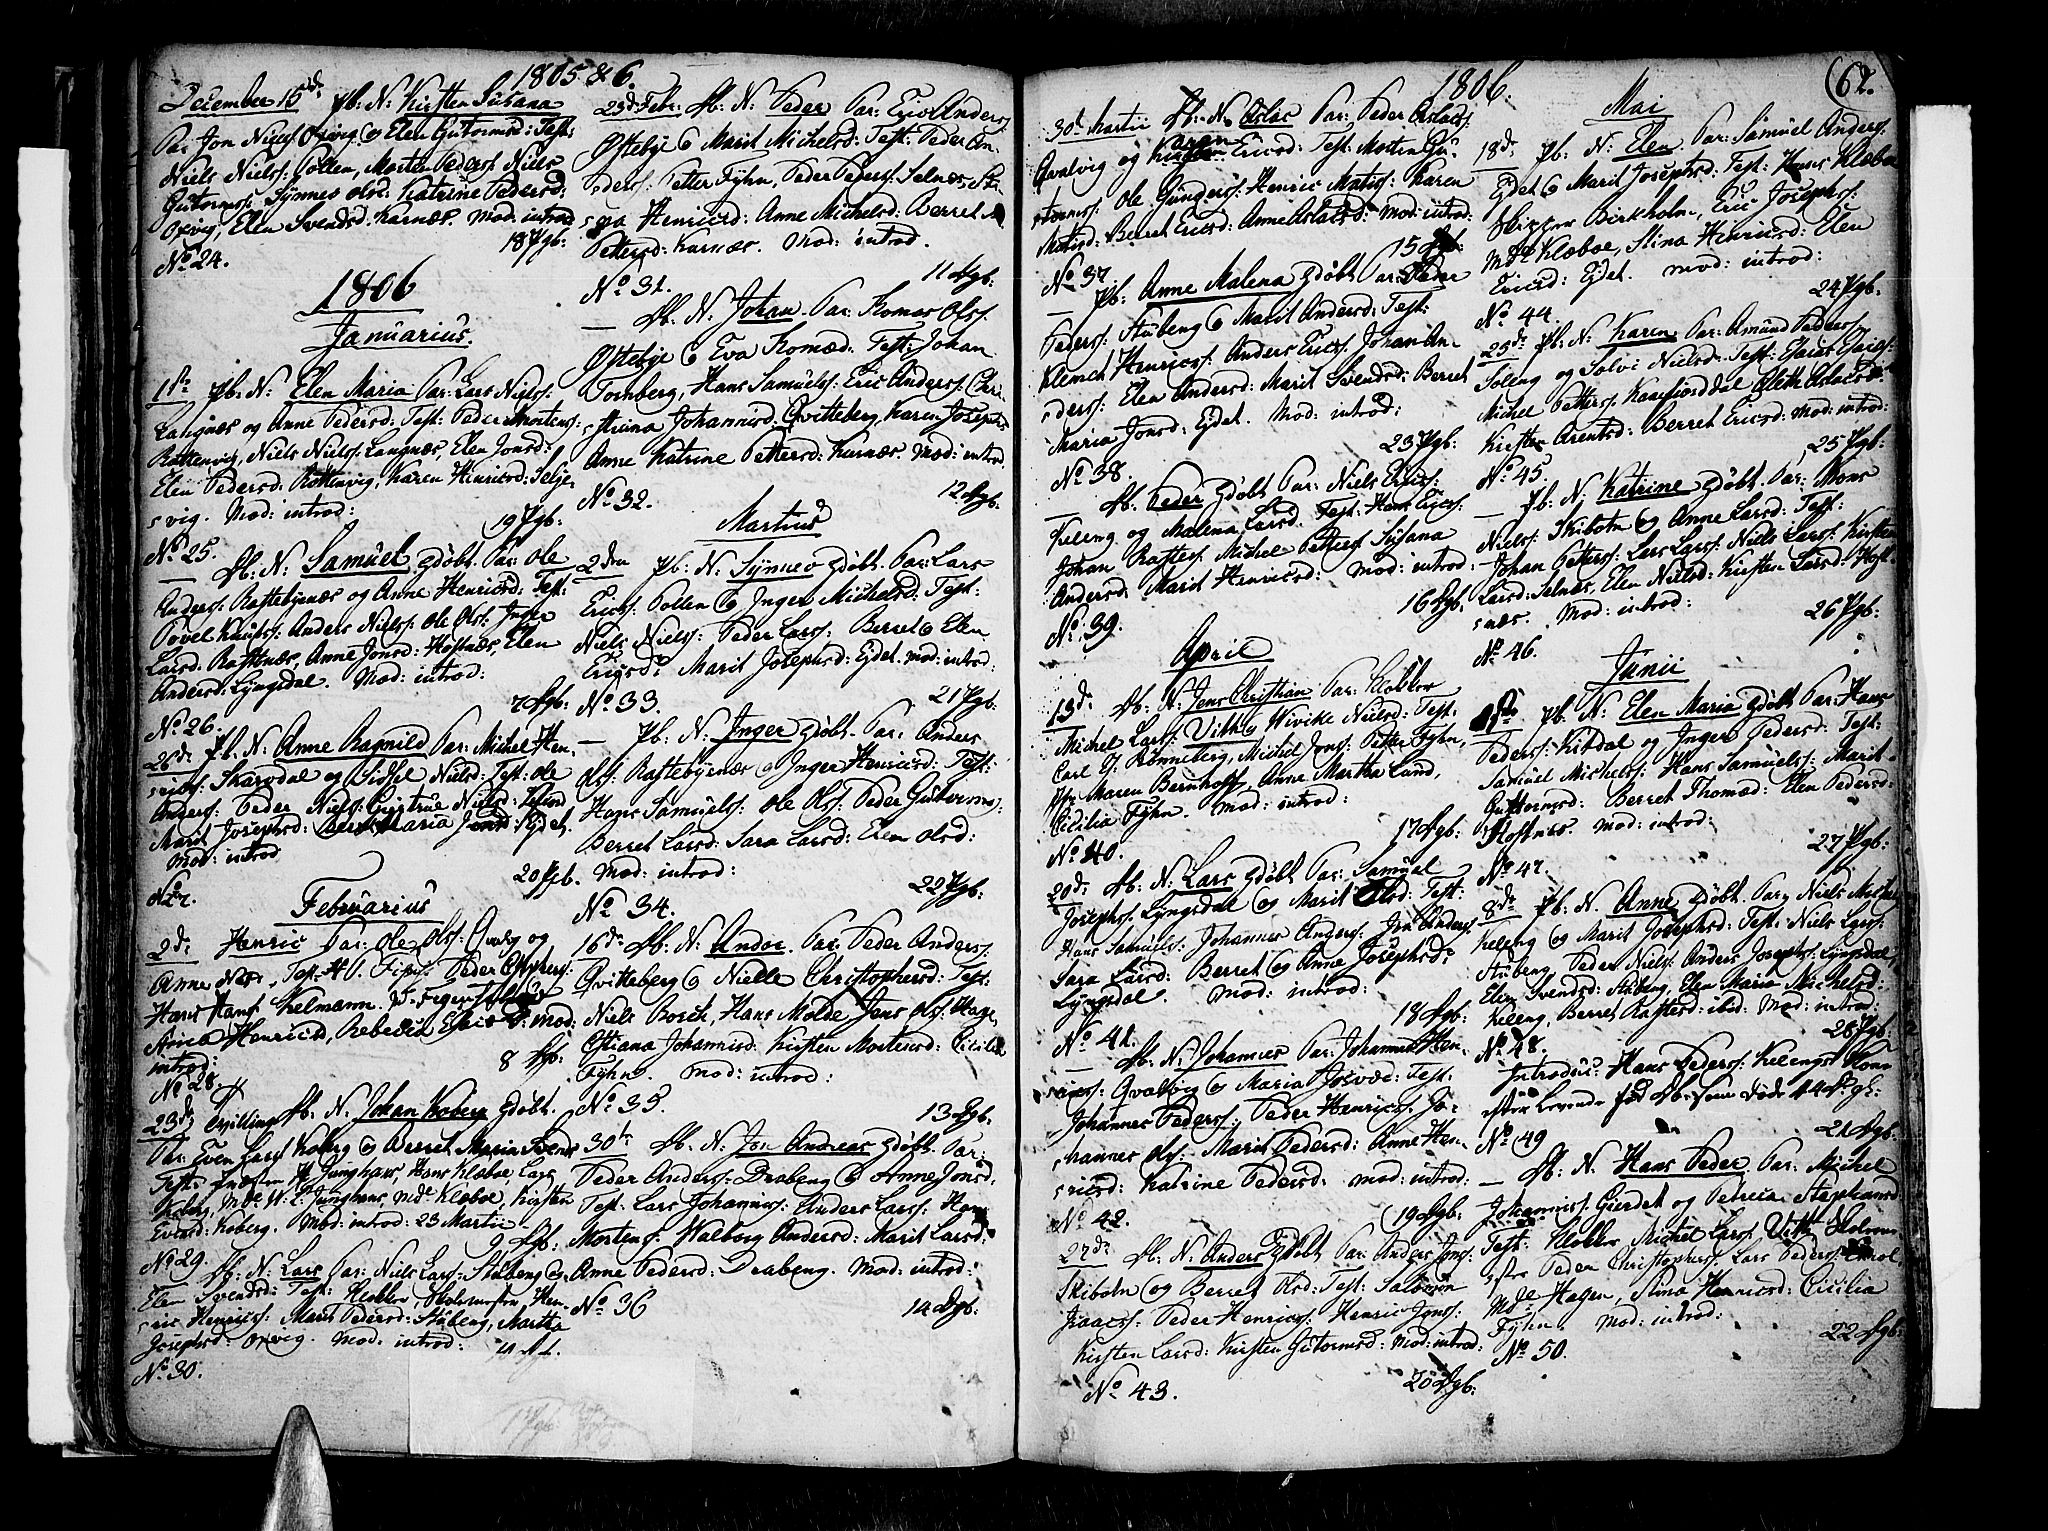 1805 & 6.
December 15de Pb: N: Kirsten Susana
Par: Jon Niels: Oxvig & Elen Gutormsd: Test:
Niels Niels: Pollen, Morten Peders: Niels
Gutorms: Synnev Olsd: Katrine Pedersd:
Oxvig, Elen Svendsd: Karnæs. Mod: introd
18 Pgb:
No 24.
1806
Januarius.
1ste Pb: N: Elen Maria Par: Lars Niels:
Langnæs og Anne Pedersd: Test: Peder Mortens:
Rottenvig, Niels Niels: Langnæs, Elen Jonsd:
Elen Pedersd: Rottenvig, Karen Henricsd: Selje
vig. Mod: introd:
19 Pgb:
No 25.
— Db: N: Samuel gdøbt Par: Ole
Anders: Raftebynæs og Anne Henricsd: Test:
Povel Knuts: Anders Niels: Ole Ols: Inger
Larsd: Raftbnæs, Anne Jonsd: Hoftnæs, Elen
Andersd: Lyngsdal. Mod: introd:
7 Dgb:
No 26.
26de Pb: N: Anne Ragnild Par: Michel Hen-
rics: Skarsdal og Sidsel Nielsd: Test: Ole
Anders: Peder Niels:
Marit Josephsd: Maria Ejdet,
Mod: introd
20 Pgb.
No 27.
Februarius
2de Henric Par: Ole Ols: Qvalvig og
Anne Test:
Hans Hans: Kelmann.
Anna Henricsd, Rebecka Mod:
introd:
8 Db:
No 28.
23de Db: N: Johan Koberg gdøbt.
Par: Even Lars: Koberg & Berret Maria
Test: H Junghans, Hans Klæboe, Lars
Koberg, Mde W: C: Junghans, Mde Klæboe, Kirsten
Eversd: Koberg. Mod: introd: 23 Martii
9 Db:
No 29.
Db: N: Lars Par: Niels Lars: Stubeng &
Elen Svendsd: Test: Klokker, Hen-
ric Henrics: Marit Pedersd: Stubeng, Martha
Josephsd: Oxvig. Mod: introd:
No 30.
23de Febr: Db: N: Peder Par: Anders:
Oftebye & Marit Michelsd: Test: Peder An-
ders: Petter Fyhn, Peder Peders: Selnæs,
Henricsd: Anne Michelsd: Berret
Pettersd: Karnæs. Mod: introd.
11 Dgb:
No 31.
— Db. N: Johan Par: Komas Ols:
Oftebye & Eva Komæd: Test: Johan
Tornberg, Hans Samuels: Eric Anders: Chri-
stina Johannisd: Qvitteberg, Karen Josephsd:
Anne Katrine Pettersd: Karnæs. Mod: introd
12 Dgb.
No 32.
Martius
2den Pb: N: Synnev gdøbt Par: Lars
Erics: Pollen & Inger Michelsd: Test:
Niels Niels: Peder Lars: Berret & Elen
Ericsd: Marit Josephsd: Ejdet. Mod: introd:
21 Pgb:
No 33.
— Pb: N: Inger gdøbt Par: Anders
Ols: Raftebynæs & Inger Henricsd: Test:
Hans Samuels: Ole Ols: Peder Gutorms:
Berret Larsd: Sara Larsd: Elen Olsd:
Mod: introd:
22 Pgb:
No 34.
16de Db: N: Andor Par: Peder Anders:
Qvitteberg & Nielle Christophersd: Test:
Niels Bosch, Hans Molde Jens Ols: Hage,
Johannisd: Kirsten Mortensd: Cicilia
Fyhn. Mod: introd:
No 35.
13 Dgb:
30te Db: N: Jon Andreas gdøbt Par:
Peder Anders: Drabeng & Anne Jonsd,
Test: Lars Johannis: Anders Lars: Hans
Mortens: Walborg Andersd: Marit Larsd:
Anne Pedersd: Drabeng. Mod: introd:
No 36
14 Dgb:
1806.
62.
30te Martii Db: N: Aslac Par: Peder Aslacs:
Qvalvig og Karen Ericsd: Test: Morten Gu-
torms: Ole Gunders: Henric Matis: Karen
Matisd: Berret Ericsd: Anne Aslacsd: Mod: introd:
15 Dgb:
No 37.
— Pb: Anne Malena gdøbt Par: Peder
Peders: Stubeng & Marit Andersd: Test:
Klemet Henrics: Anders Erics: Johan An-
ders: Elen Andersd: Marit Svendsd: Berret
Maria Jonsd: Ejdet. Mod: introd:
23 Pgb:
No 38.
— Db. Peder gdøbt Par: Niels Erics:
Keleng og Malena Larsd. Test: Hans Erics:
Johan Raftes: Michel Petters: Susana
Andersd: Marit Henricsd: Mod: introd
16 Dgb.
No 39.
April
13de Db: N: Jens Christian Par: Klokker
Michel Lars: Vith & Wivike Nielsd: Test:
Carl J: Rønneberg, Michel Jons: Petter Fyhn,
Maren Bernhoft, Anne Martha Lund,
Cicilia Fyhn. Mod: introd:
17 Dgb:
No 40.
20de Db: N: Lars gdøbt Par: Samuel
Josephs: Lyngsdal & Marit Olsd: Test:
Hans Samuels: Johannes Anders: Jon Anders:
Sara Larsd: Berret & Anne Josephsd:
Lyngsdal. Mod: introd:
18 Dgb:
No 41.
— Db: N: Johannes Par: Johannes Hen-
rics: Qvalvig & Maria Josvæd: Test:
Johannes Peders: Peder Henrics: Jo-
hannes Ols: Marit Pedersd: Anne Hen-
ricsd: Katrine Pedersd: Mod: introd:
19 Dgb:
No 42.
27de Db: N: Anders gdøbt Par: Anders Jons:
Skibotn & Berret Olsd: Test: Salomon
Isaacs: Peder Henrics: Henric Jons:
Kirsten Larsd: Kirsten Gutormsd: Mod: introd:
20 Dgb:
No 43.
Mai
18de Pb: N: Elen Par: Samuel Anders:
Ejdet & Marit Josephsd: Test: Hans Klæboe
Skipper Birkholm, Eric Josephs:
Mde Klæboe, Stina Henricsd: Elen
Ericsd: Ejdet. Mod: introd:
24 Pgb:
No 44.
25de Pb: N: Karen Par: Amund Peders:
Soleng og Solvi Nielsd: Test: Esaias Esaias:
Michel Petters: Kaafjorddal Aleth Aslacsd:
Kirsten Arentsd: Berret Ericsd: Mod: introd:
25 Pgb:
No 45.
— Pb: N: Katrine gdøbt Par: Mons
Niels: Skibotn & Anne Larsd: Test:
Johan Peters: Lars Lars: Niels Lars: Kirsten
Larsd: Selnæs, Elen Nielsd: Kirsten Larsd: Hoft-
næs. Mod: introd:
26 Pgb:
No 46.
Junii
1ste Pb: N: Elen Maria gdøbt Par: Hans
Peders: Kitdal og Inger Pedersd: Test:
Samuel Michels: Hans Samuels: Marit
Guttormsd: Berret Thomæd: Elen Pedersd:
Hoftnæs. Mod: introd:
27 Pgb:
No 47.
8de Pb: N: Anne gdøbt Par: Niels
Keleng & Marit Josephsd: Test: Niels Lars:
Stubeng Peder Niels: Anders Josephs: Lyngsdal,
Elen Svendsd: Stubeng, Elen Maria Michelsd:
Keleng, Berret Raftesd: ibid: Mod: introd:
28 Pgb:
No 48.
Introduc: Hans Peders: Kelengs Kone
efter Levende fød Db: som døde
21 Dgb:
No 49
— Db: N: Hans Peder Par: Michel
Johannis: Gierdet og Petrea Stephansd:
Test: Klokker Michel Lars: Vith
Peder Christophers: Lars Peders:
Mde Hagen, Stina Henricsd: Cicilia
Fyhn. Mod: introd:
22 Dgb:
No 50.